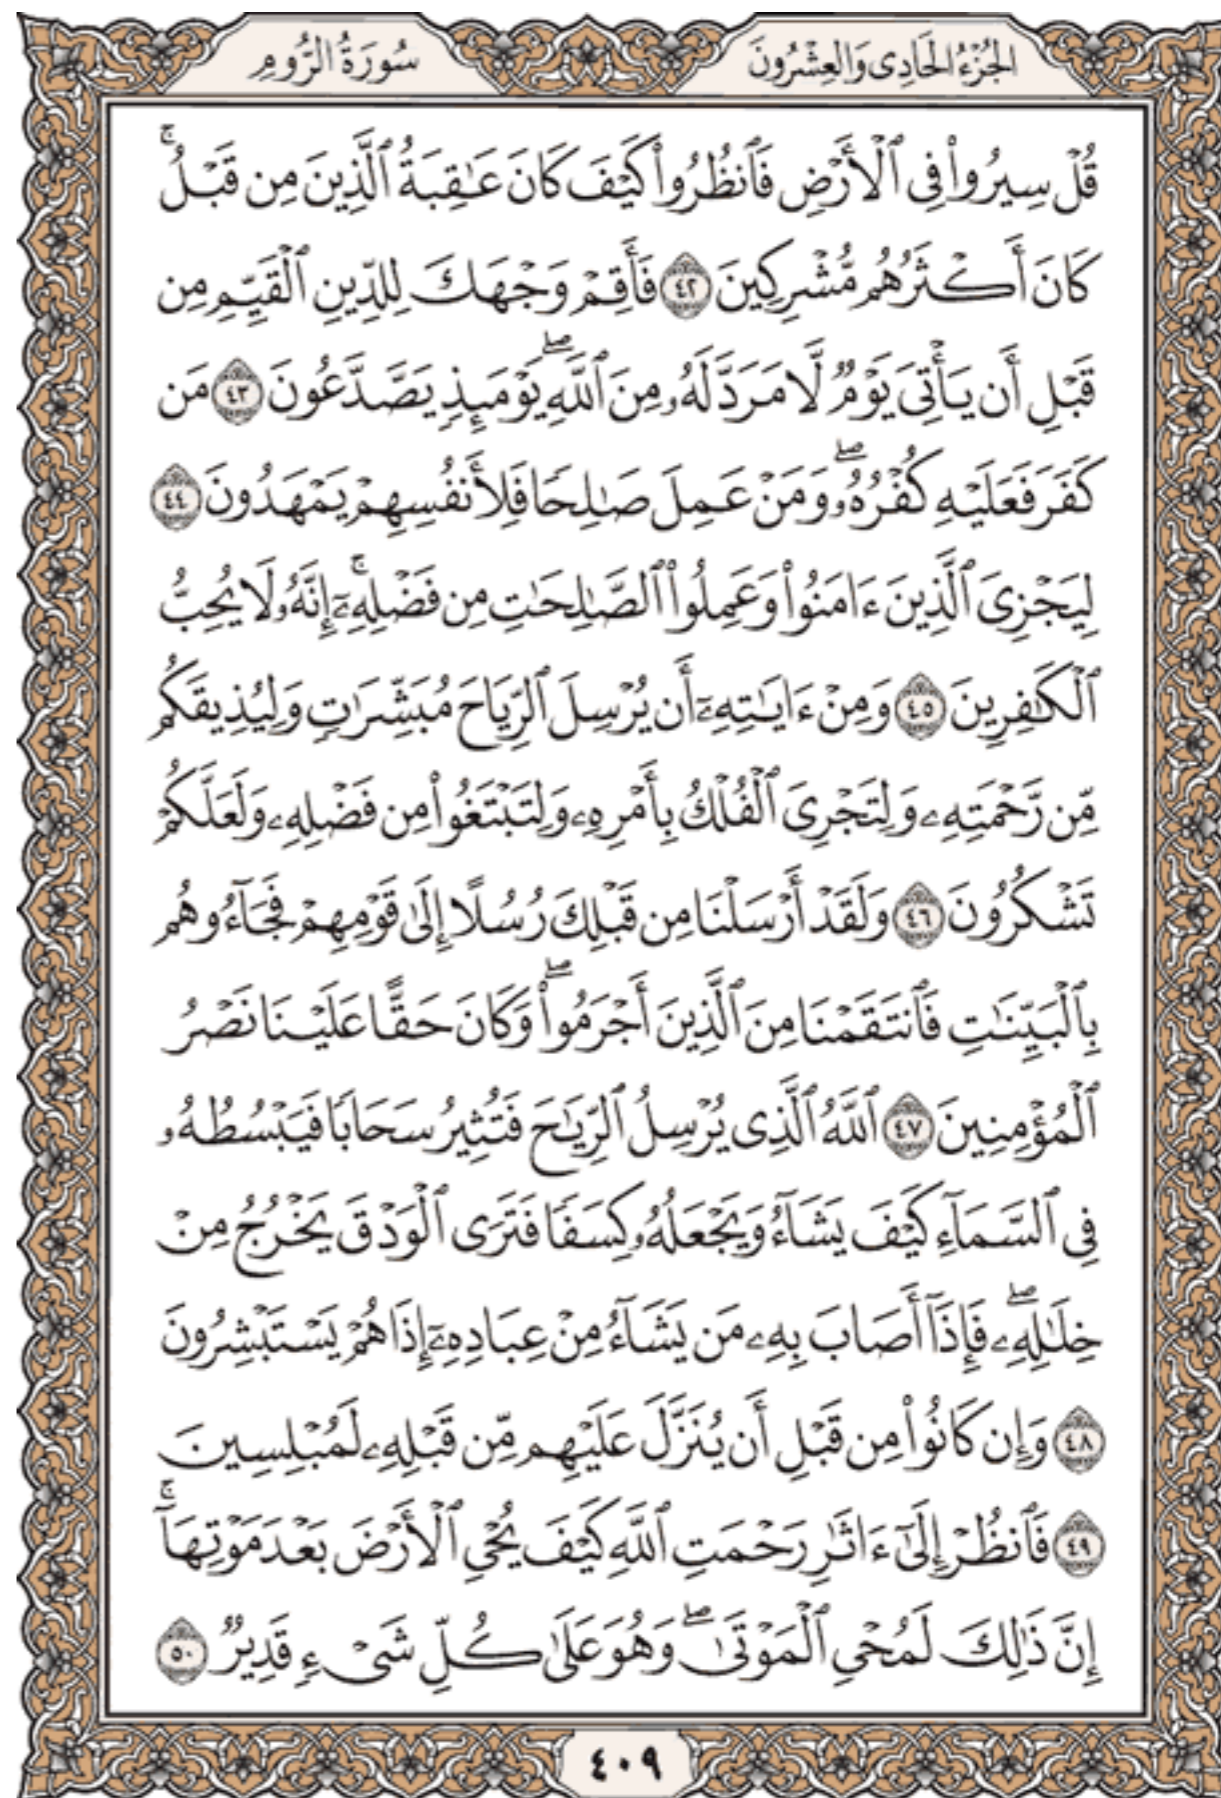 الجُزْءُ الحَادِى وَالعِشْرُونَ
سُورَةُ الرُّومِ
قُلْ سِيرُوا۟ فِى ٱلْأَرْضِ فَٱنظُرُوا۟ كَيْفَ كَانَ عَٰقِبَةُ ٱلَّذِينَ مِن قَبْلُ ۚ
كَانَ أَكْثَرُهُم مُّشْرِكِينَ ٤٢ فَأَقِمْ وَجْهَكَ لِلدِّينِ ٱلْقَيِّمِ مِن
قَبْلِ أَن يَأْتِىَ يَوْمٌ لَّا مَرَدَّ لَهُۥ مِنَ ٱللَّهِ ۖ يَوْمَئِذٍ يَصَّدَّعُونَ ٤٣ مَن
كَفَرَ فَعَلَيْهِ كُفْرُهُۥ ۖ وَمَنْ عَمِلَ صَٰلِحًا فَلِأَنفُسِهِمْ يَمْهَدُونَ ٤٤
لِيَجْزِىَ ٱلَّذِينَ ءَامَنُوا۟ وَعَمِلُوا۟ ٱلصَّٰلِحَٰتِ مِن فَضْلِهِۦٓ ۚ إِنَّهُۥ لَا يُحِبُّ
ٱلْكَٰفِرِينَ ٤٥ وَمِنْ ءَايَٰتِهِۦٓ أَن يُرْسِلَ ٱلرِّيَاحَ مُبَشِّرَٰتٍ وَلِيُذِيقَكُم
مِّن رَّحْمَتِهِۦ وَلِتَجْرِىَ ٱلْفُلْكُ بِأَمْرِهِۦ وَلِتَبْتَغُوا۟ مِن فَضْلِهِۦ وَلَعَلَّكُمْ
تَشْكُرُونَ ٤٦ وَلَقَدْ أَرْسَلْنَا مِن قَبْلِكَ رُسُلًا إِلَىٰ قَوْمِهِمْ فَجَآءُوهُم
بِٱلْبَيِّنَٰتِ فَٱنتَقَمْنَا مِنَ ٱلَّذِينَ أَجْرَمُوا۟ ۖ وَكَانَ حَقًّا عَلَيْنَا نَصْرُ
ٱلْمُؤْمِنِينَ ٤٧ ٱللَّهُ ٱلَّذِى يُرْسِلُ ٱلرِّيَٰحَ فَتُثِيرُ سَحَابًا فَيَبْسُطُهُۥ
فِى ٱلسَّمَآءِ كَيْفَ يَشَآءُ وَيَجْعَلُهُۥ كِسَفًا فَتَرَى ٱلْوَدْقَ يَخْرُجُ مِنْ
خِلَٰلِهِۦ ۖ فَإِذَآ أَصَابَ بِهِۦ مَن يَشَآءُ مِنْ عِبَادِهِۦٓ إِذَا هُمْ يَسْتَبْشِرُونَ
٤٨ وَإِن كَانُوا۟ مِن قَبْلِ أَن يُنَزَّلَ عَلَيْهِم مِّن قَبْلِهِۦ لَمُبْلِسِينَ
٤٩ فَٱنظُرْ إِلَىٰٓ ءَاثَٰرِ رَحْمَتِ ٱللَّهِ كَيْفَ يُحْىِ ٱلْأَرْضَ بَعْدَ مَوْتِهَآ ۚ
إِنَّ ذَٰلِكَ لَمُحْىِ ٱلْمَوْتَىٰ ۖ وَهُوَ عَلَىٰ كُلِّ شَىْءٍ قَدِيرٌ ٥٠
٤٠٩